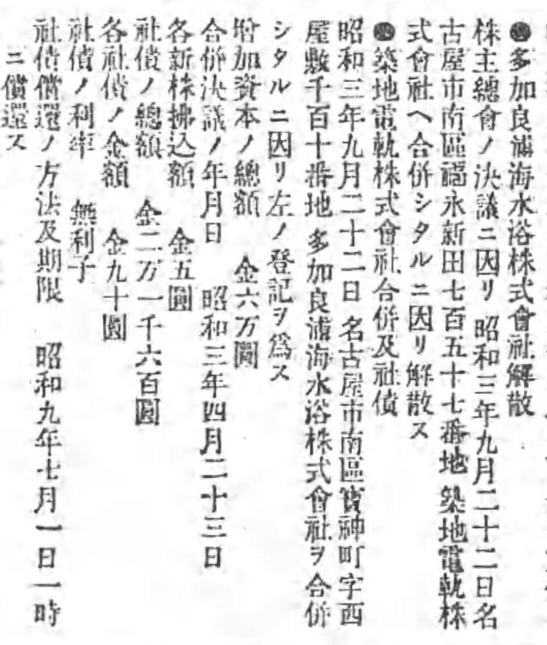 ●多加良浦海水浴株式會社解散
株主總會ノ決議ニ因リ 昭和三年九月二十二日名
古屋市南區福永新田七百五十七番地 築地電軌株
式會社ヘ合併シタルニ因リ解散ス
●築地電軌株式會社合併及社債
昭和三年九月二十二日 名古屋市南區寶神町字西
屋敷千百十番地 多加良浦海水浴株式會社ヲ合併
シタルニ因リ左ノ登記ヲ爲ス
增加資本ノ總額 金六万圓
合併決議ノ年月日 昭和三年四月二十三日
各新株拂込額 金五圓
社債ノ總額 金二万一千六百圓
各社債ノ金額 金九十圓
社債ノ利率 無利子
社債償還ノ方法及期限 昭和九年七月一日一時
ニ償還ス